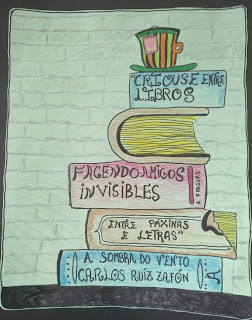 "CRIOUSE ENTRE
LIBROS
FACENDO AMIGOS
INVISIBLES
A. FRAGUAS
ENTRE PÁXINAS
E LETRAS"
A SOMBRA DO VENTO
CARLOS RUÍZ ZAFÓN